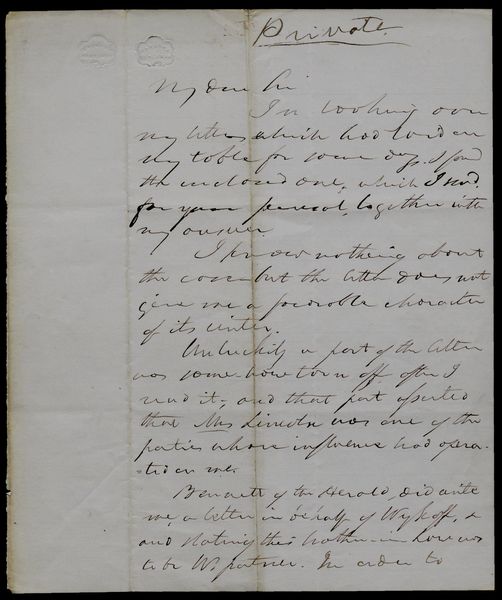 Private
My dear Sir
In looking over
my letters which had laid on
my table for some days, I find
the enclosed one, which I send
for your perusal, together with
my answer
I know nothing about
the case but the letter does not
give me a favorable character
of its writer.
Unluckily a part of the letter
was some how torn off after I
read it, and that part asserted
that Mrs Lincoln was one of the
parties whose influence had opera-
ted on me.
Bennett of the Herald, did write
me a letter in behalf of Wykoff, &
and stating this brother in Law was
to be W's partner. In order to